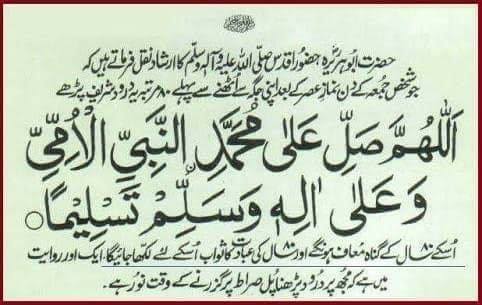 حضرت ابو ہریرہؓ حضور اقدس صلی اللہ علیہ وآلہٖ وسلم کا ارشاد نقل فرماتے ہیں کہ
جو شخص جمعہ کے دن نماز عصر کے بعد اپنی جگہ سے اٹھنے سے پہلے ۸۰ مرتبہ یہ درود شریف پڑھے
اَللّٰهُمَّ صَلِّ عَلٰى مُحَمَّدِ ۨالنَّبِيِّ الْاُمِّيِّ
وَعَلٰى اٰلِهٖ وَسَلِّمْ تَسْلِيْمًا ○
اُسکے ۸۰ سال کے گناہ معاف ہونگے اور ۸۰ سال کی عبادت کا ثواب اُسکے لئے لکھا جائیگا۔ ایک اور روایت
میں ہے کہ مجھ پر درود پڑھنا پل صراط پر گزرنے کے وقت نور ہے۔